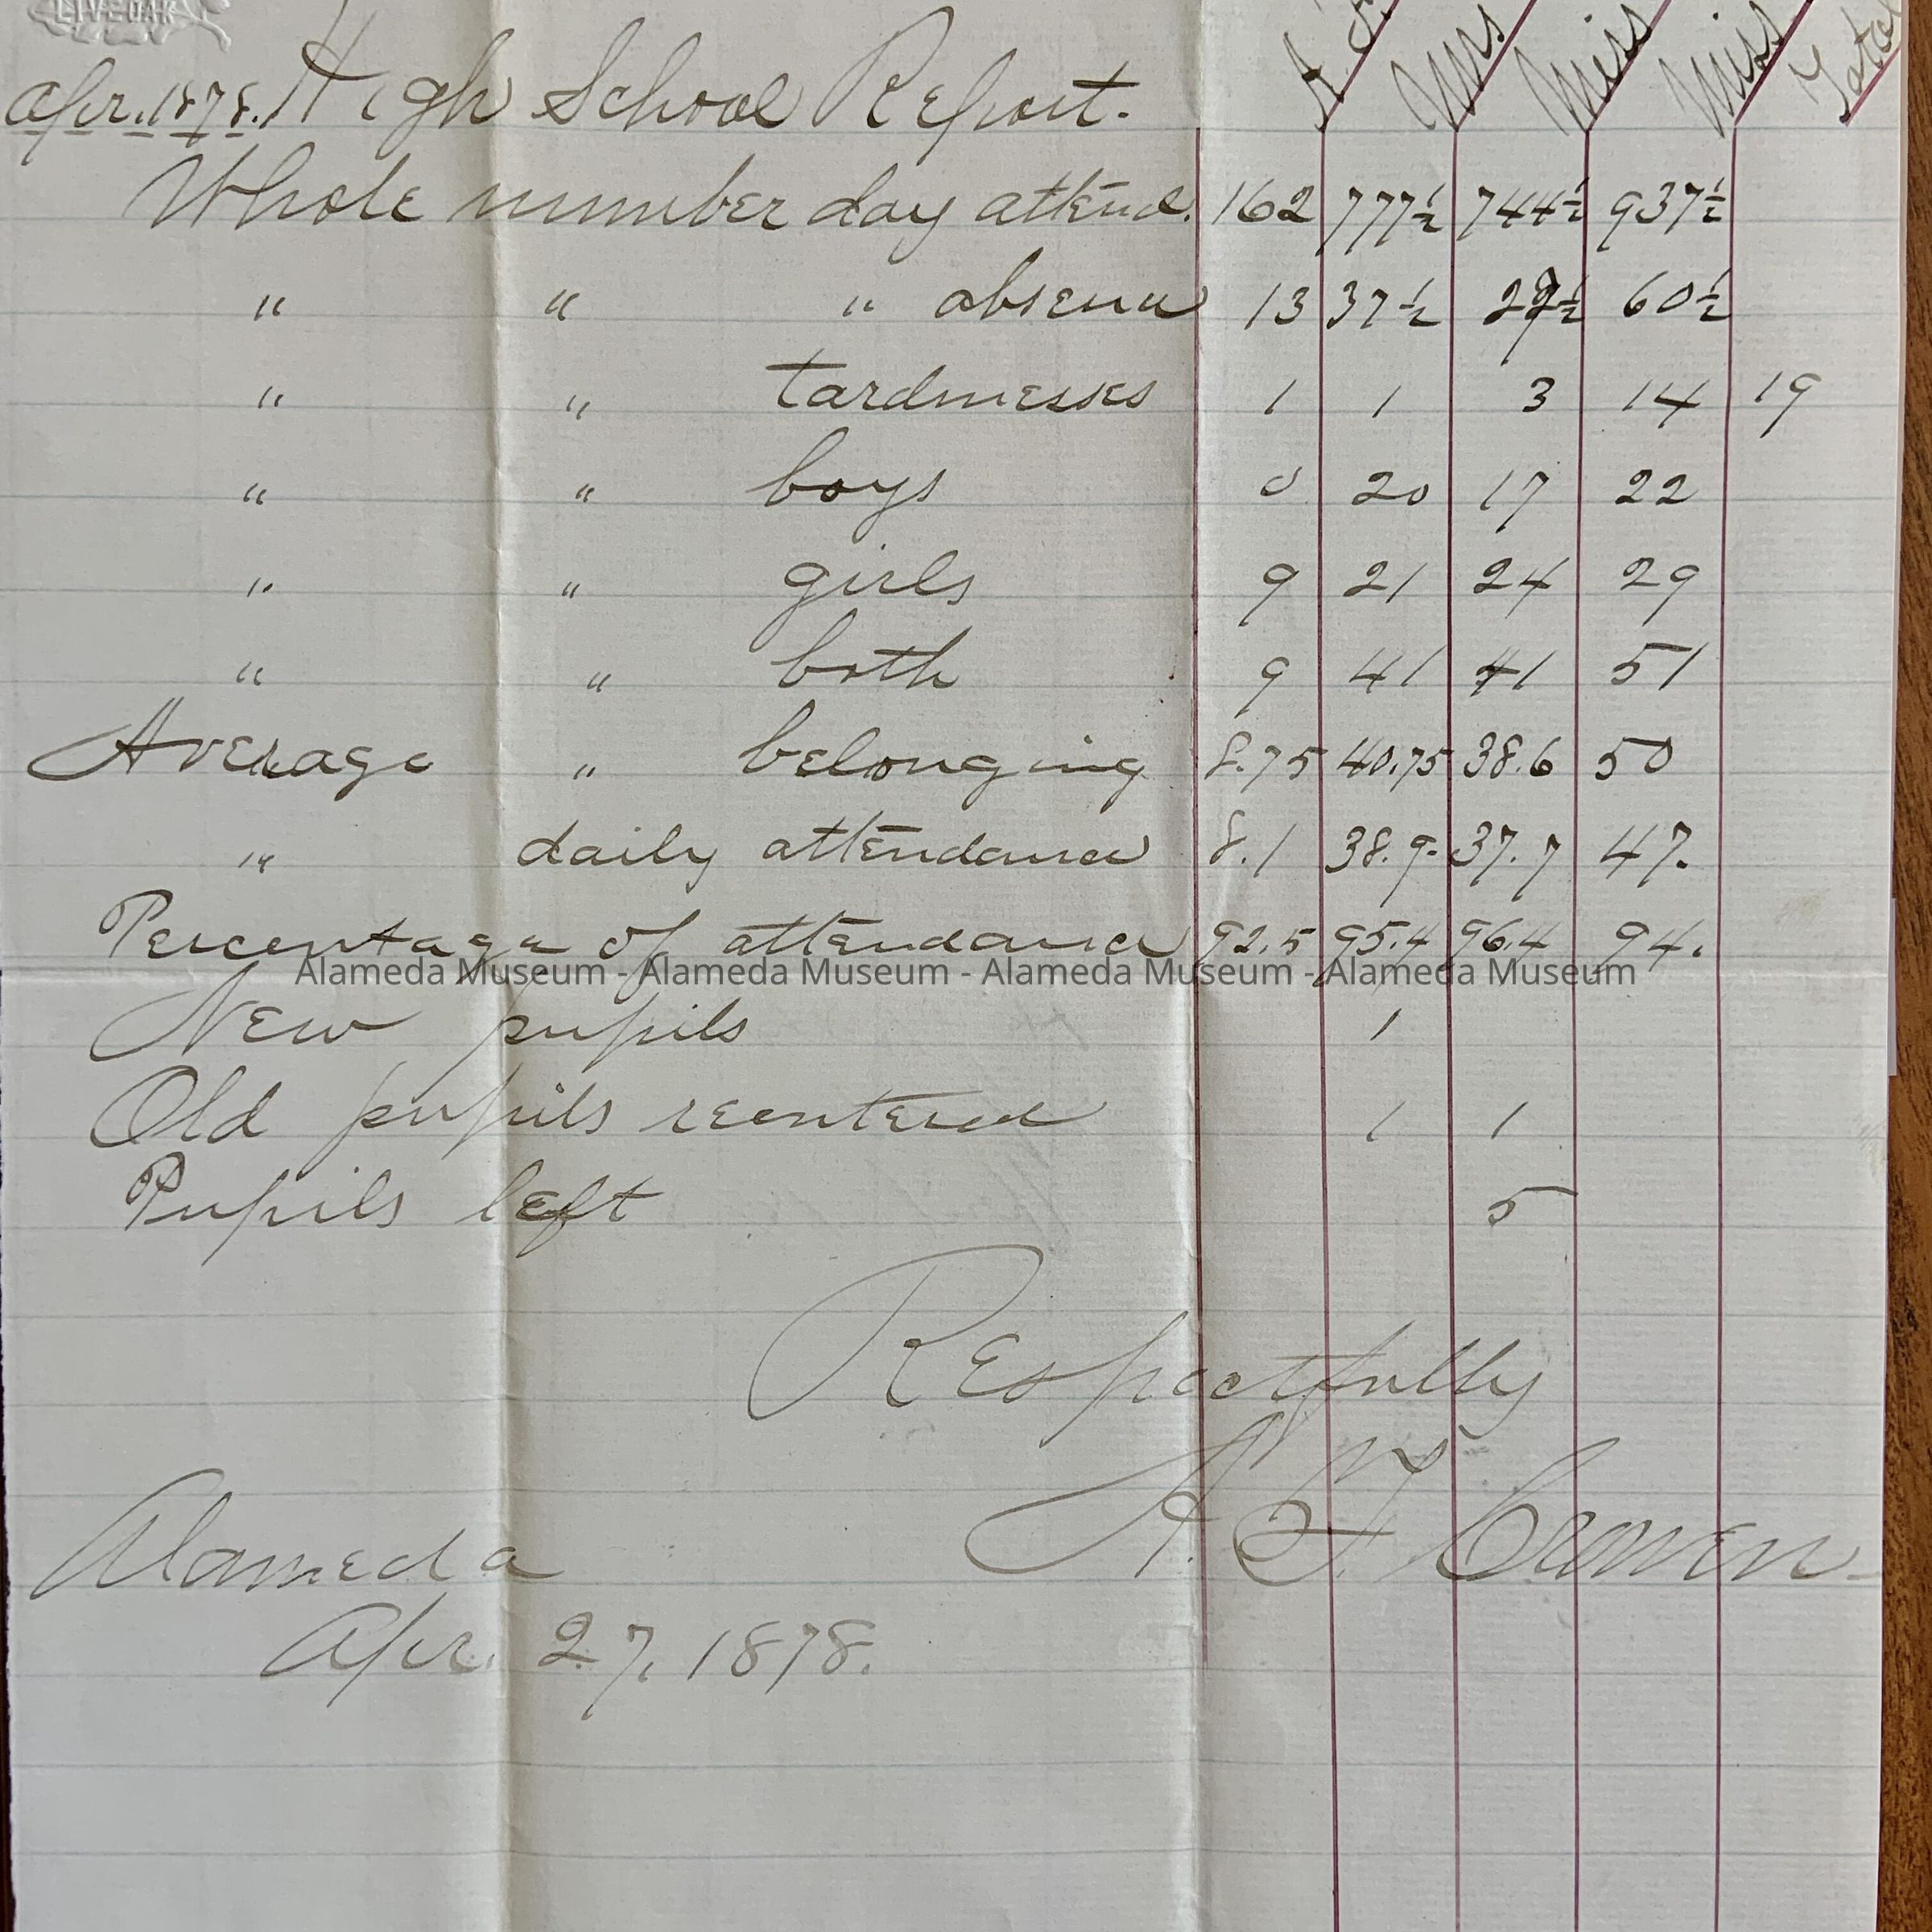 LIVE OAK
Apr. 1878. High School Report. Mrs Miss Miss Total
Whole number day attend. 162 777½ 744½ 937½
" " " absence 13 37½ 60½
" " tardinesses 1 1 3 14 19
" " boys 0 20 17 22
" " girls 9 21 24 29
" " both 9 41 41 51
Average " belonging 8.75 40.75 38.6 50
" daily attendance 8.1 38.9 37.7 47.
Percentage of attendance 92.5 95.4 96.4 94.
Alameda Museum - Alameda Museum - Alameda Museum - Alameda Museum
New pupils 1
Old pupils reentered 1 1
Pupils left 5
Respectfully
Alameda
Apr. 27, 1878.